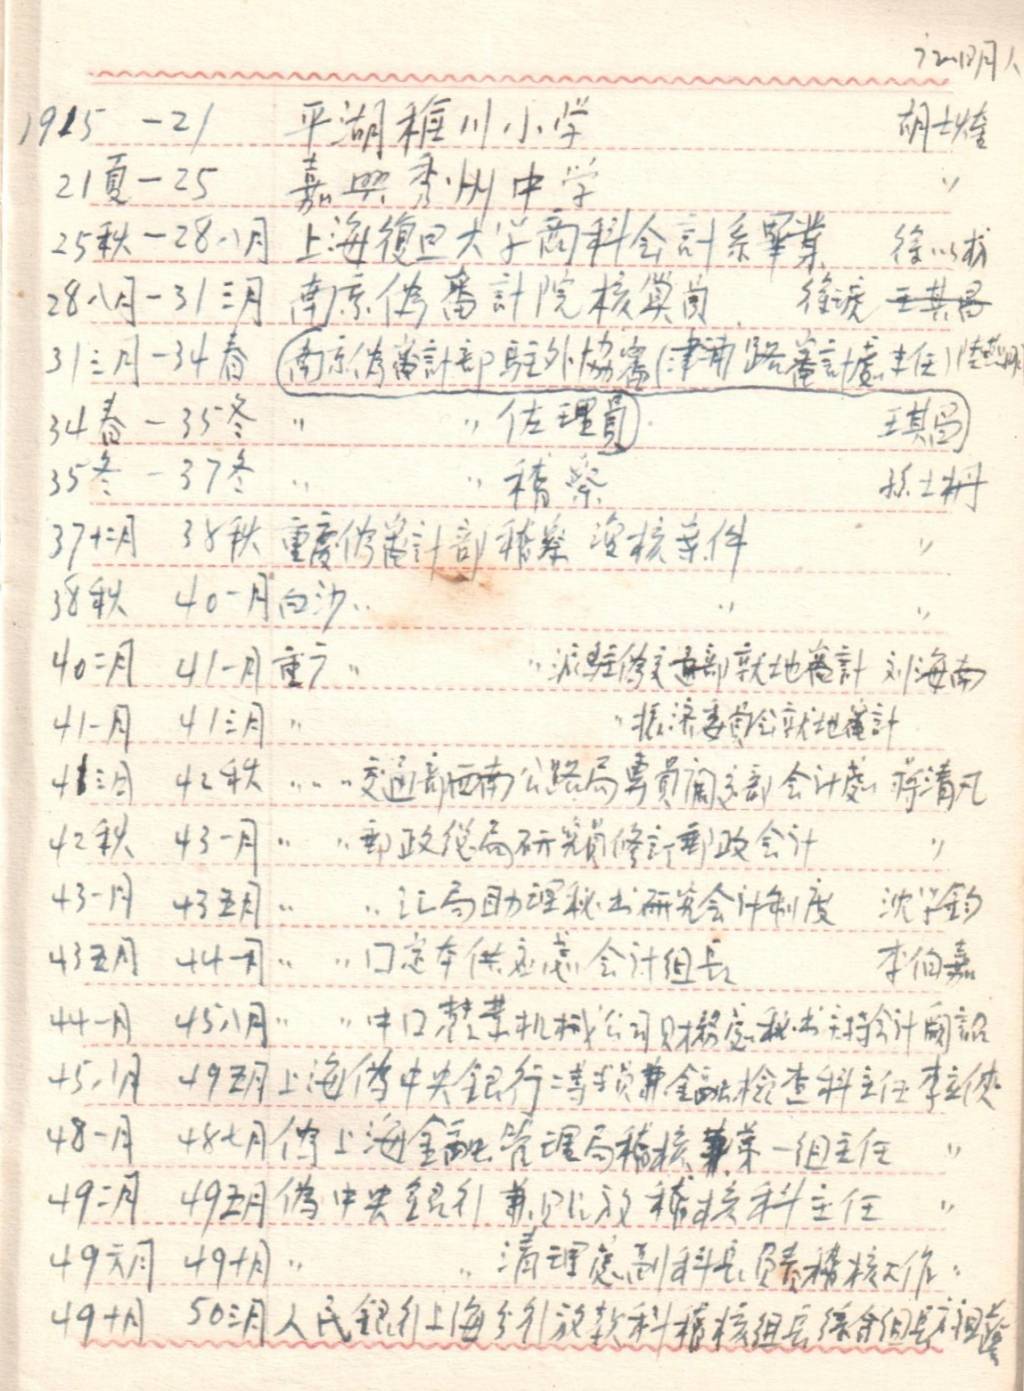 证明人
1915 -21 平湖稚川小学 胡士煃
21夏-25 嘉興秀州中学 〃
25秋-28八月 上海復旦大学商科会計系畢業
28八月-31三月 南京偽審計院核算员 王其昌
31三月-34春 南京偽審計部駐外協審(津浦路審計處主任)
34春-35冬 〃 〃 佐理員 王其昌
35冬-37冬 〃 〃 稽察
37十二月 38秋 重慶偽審計部稽察 核案件 〃
38秋 40一月 白沙 〃 〃 〃
40二月 41一月 重庆 〃 〃 派駐偽交通部就地審計 刘海南
41一月 41三月 〃 〃 振济委員会就地審計
41三月 42秋 〃 〃 交通部西南公路局專員 部会计處 蒋清凡
42秋 43一月 〃 〃 郵政总局研究員修訂郵政会计 〃
43一月 43五月 〃 〃 汇局助理秘书研究会计制度 沈 鈞
43五月 44一月 〃 〃 供应處会计组長 李伯嘉
44一月 45八月 〃 〃 中 机械公司财務處秘书 会计
45八月 49五月 上海偽中央銀行 兼金融检查科主任 李立俠
48一月 48七月 偽上海金融管理局稽核兼第一组主任 〃
49二月 49五月 偽中央銀行兼 放稽核科主任 〃
49六月 49十月 〃 〃 清理處副科長負責稽核工作 〃
49十月 50三月 人民銀行上海分行放款科稽核组長综合组長